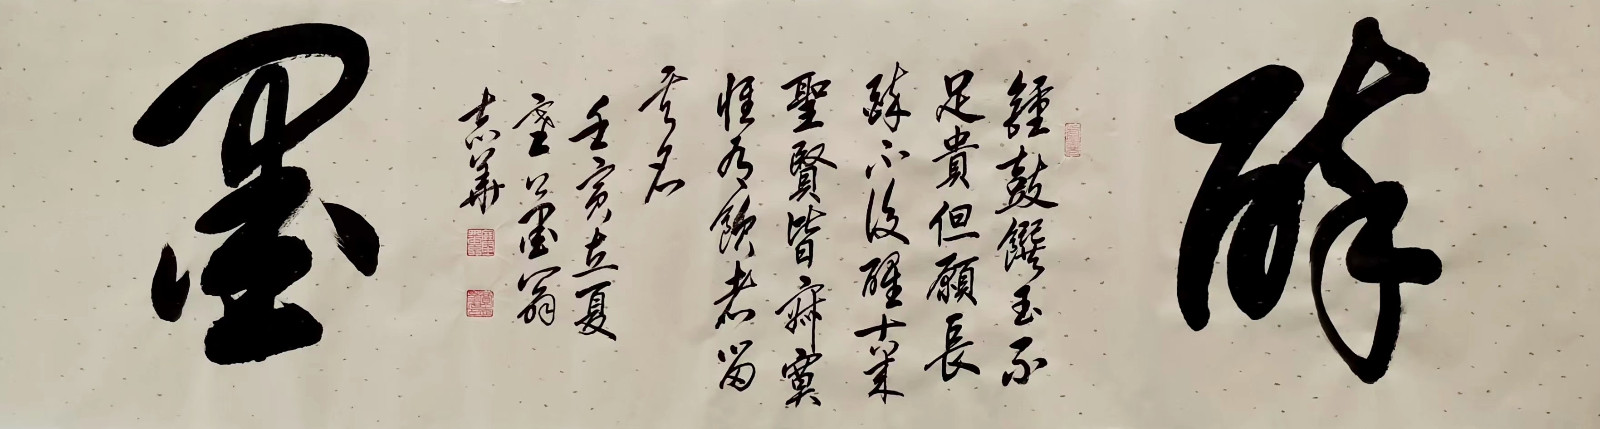 醉
鐘鼓饌玉不
足貴但願長
醉不復醒古來
聖賢皆寂寞
惟有飲者留
其名
壬寅立夏
墨翁
志華
墨